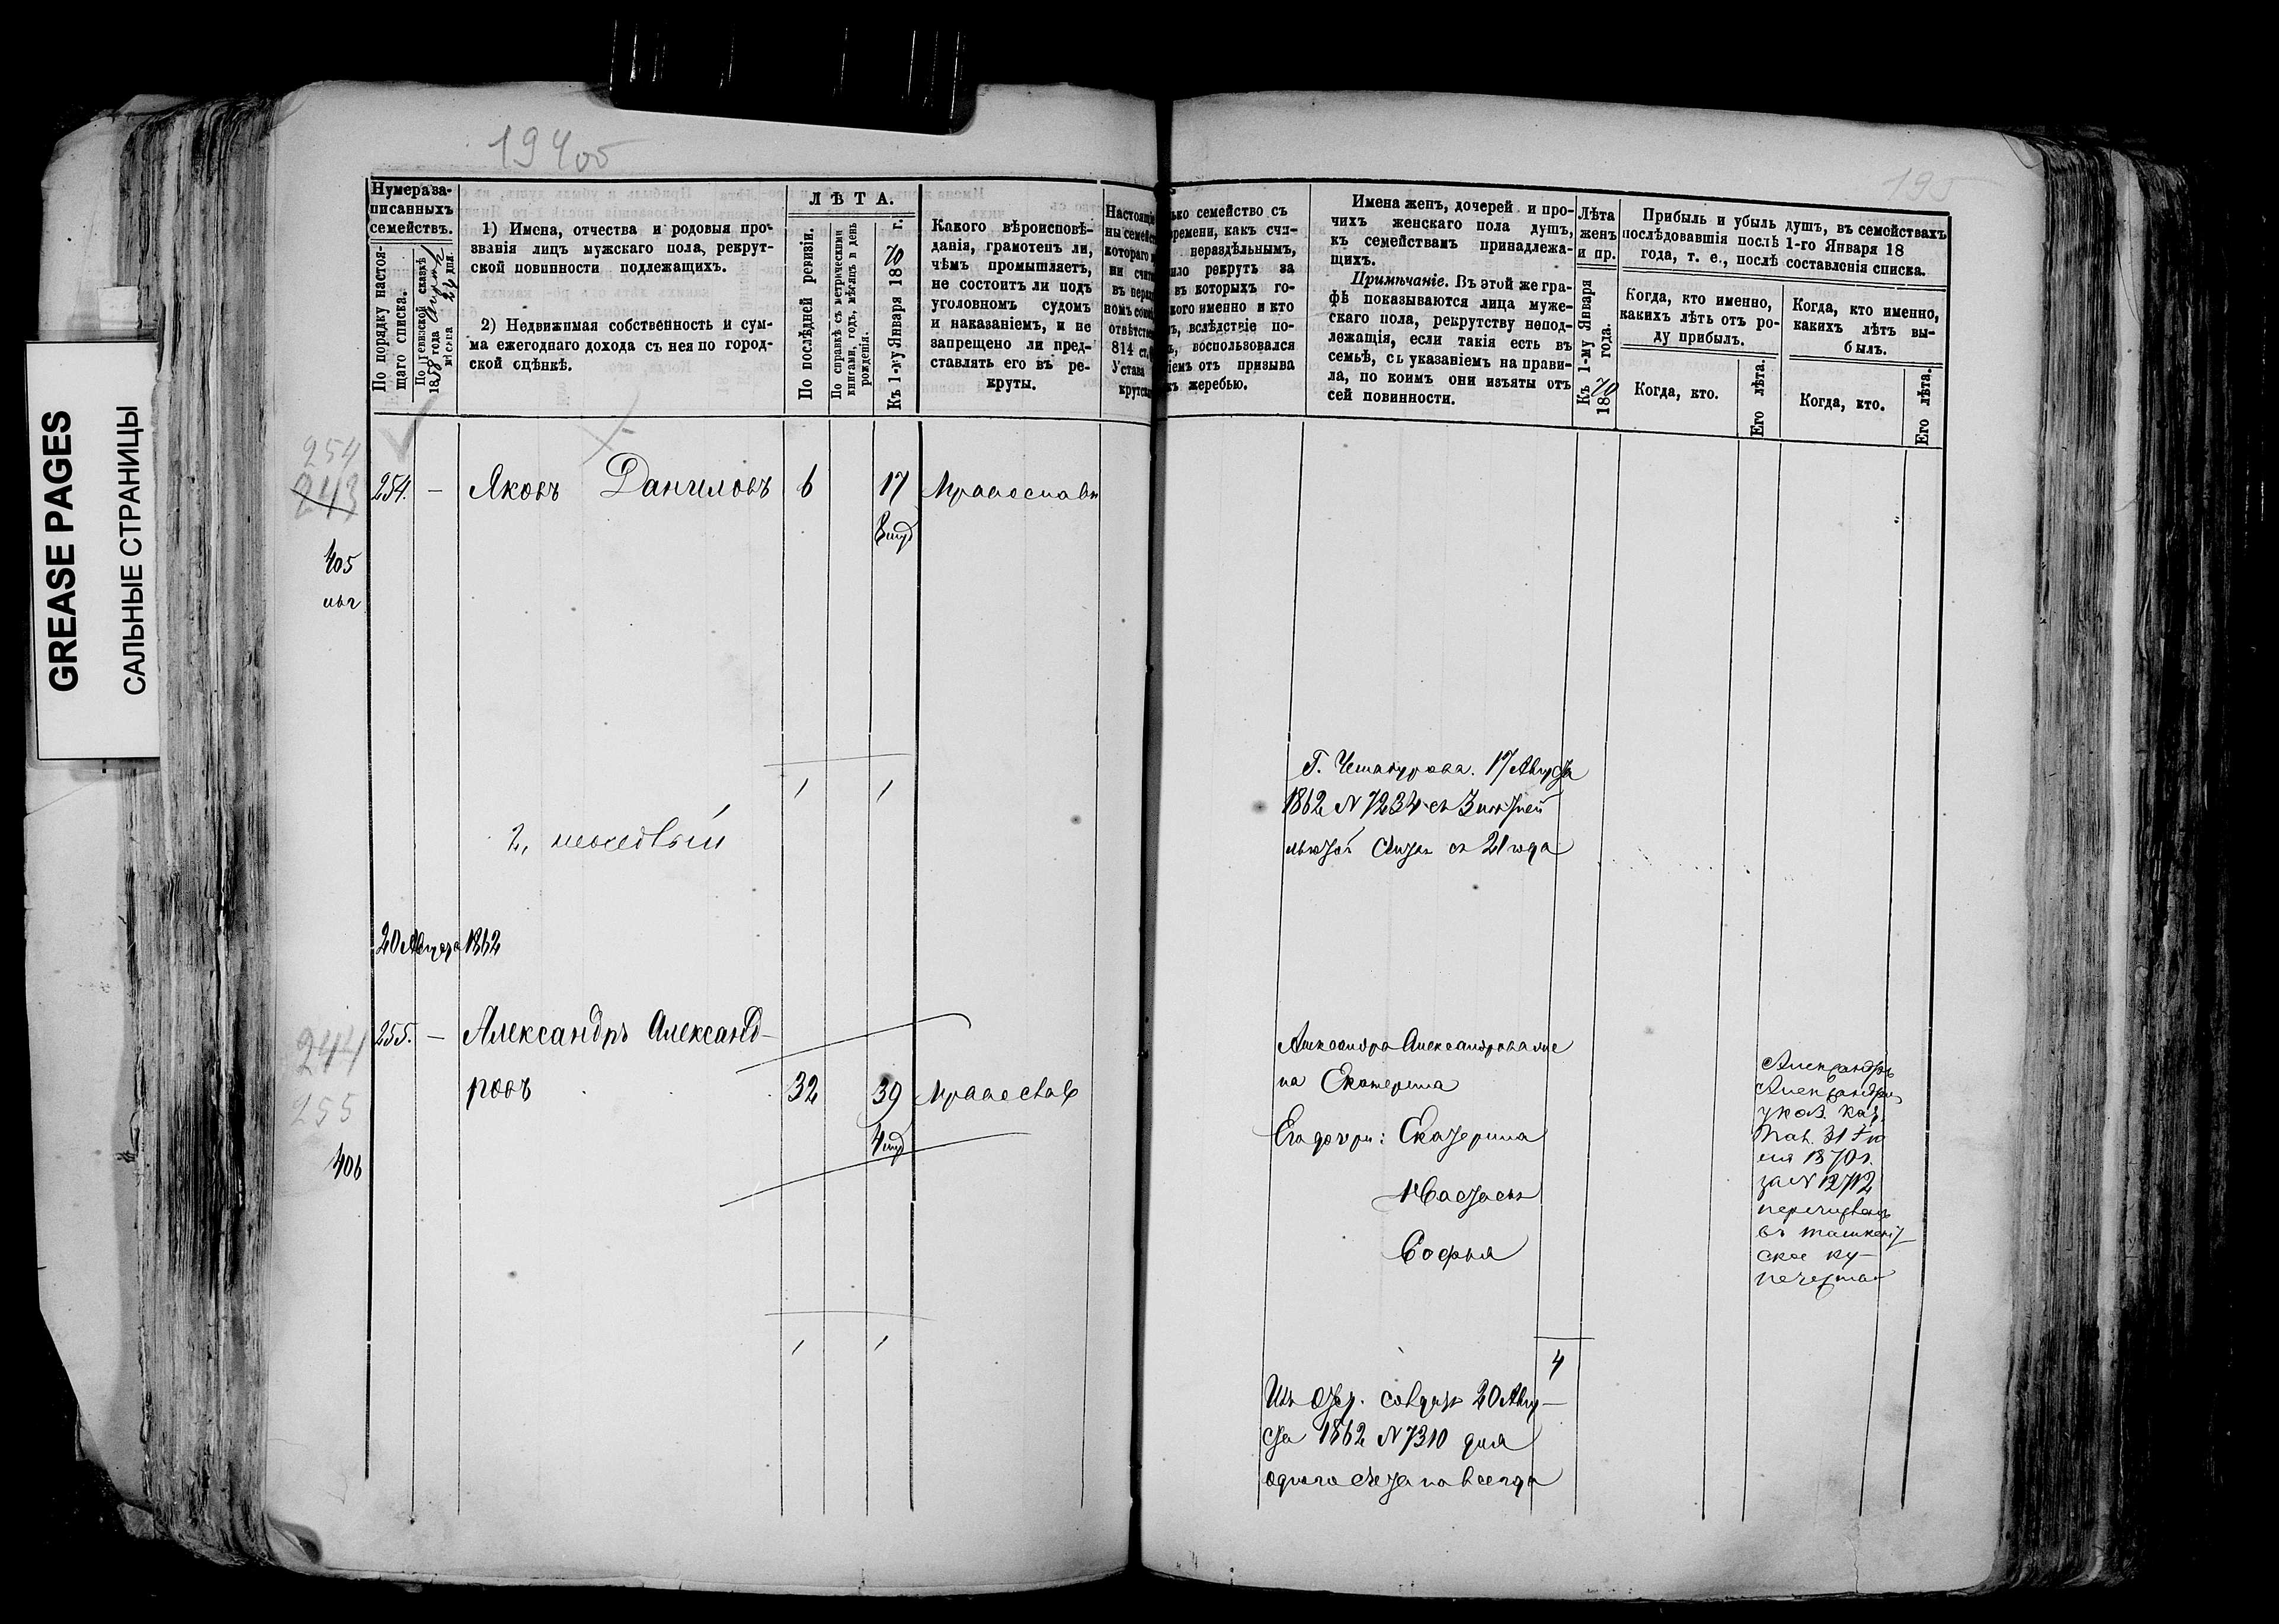 GREASE PAGES
САЛЬНЫЕ СТРАНИЦЫ
194об
195
Нумера за-
писанныхъ
семействъ.
По порядку настоя-
щаго списка.
По ревизской сказкѣ
1858 года
мѣсяца 24 дня.
1) Имена, отчества и родовыя про-
званія лицъ мужскаго пола, рекрут-
ской повинности подлежащихъ.
2) Недвижимая собственность и сум-
ма ежегоднаго дохода съ нея по город-
ской оцѣнкѣ.
ЛѢТА.
По послѣдней ревизіи.
По справкѣ съ метрическими
книгами, годъ, мѣсяцъ и день
рожденія.
Къ 1-му Января 1870 г.
Какого вѣроисповѣ-
данія, грамотенъ ли,
чѣмъ промышляетъ,
не состоитъ ли подъ
уголовномъ судомъ
и наказаніемъ, и не
запрещено ли пред-
ставлять его въ ре-
круты.
Настоящ
ны семейс
котораго
ни счит
въ перв
номъ
отвѣтств
814 ст.
Устава
крутск
ько семейство съ
ремени, какъ счи-
нераздѣльнымъ,
ило рекрутъ за
въ которыхъ го-
кого именно и кто
ъ, вслѣдствіе по-
ъ, воспользовался
іемъ отъ призыва
къ жеребью.
Имена женъ, дочерей и про-
чихъ женскаго пола душъ,
къ семействамъ принадлежа-
щихъ.
Примѣчаніе. Въ этой же гра-
фѣ показываются лица муже-
скаго пола, рекрутству непод-
лежащія, если такія есть въ
семьѣ, съ указаніемъ на прави-
ла, по коимъ они изъяты отъ
сей повинности.
Лѣта
женъ
и пр.
Къ 1-му Января
1870 года.
Прибыль и убыль душъ, въ семействахъ
послѣдовавшія послѣ 1-го Января 18
года, т. е., послѣ составленія списка.
Когда, кто именно,
какихъ лѣтъ отъ ро-
ду прибылъ.
Когда, кто именно,
какихъ лѣтъ вы-
былъ.
Когда, кто.
Его лѣта.
Когда, кто.
Его лѣта.
254
243
405
254. — Яковъ Даниловъ 6 17 Православн
1 1
Г. 17 Августа
1862 № 7234
съ 21 года
20 Августа 1862
244
255
406
255. — Александръ Александ-
ровъ 32 39 Православ
Александра Александрова же
на Екатерина
Его дочери: Екатерина
Настасья
Софья
Александръ
Александровъ
указ. каз.
пал. 31 Iю
ля 1870 г.
за № 12712
перечисленъ
въ ташкент
ское ку-
печество
1 1
4
20 Авгу-
ста 1862 № 7310 для
навсегда